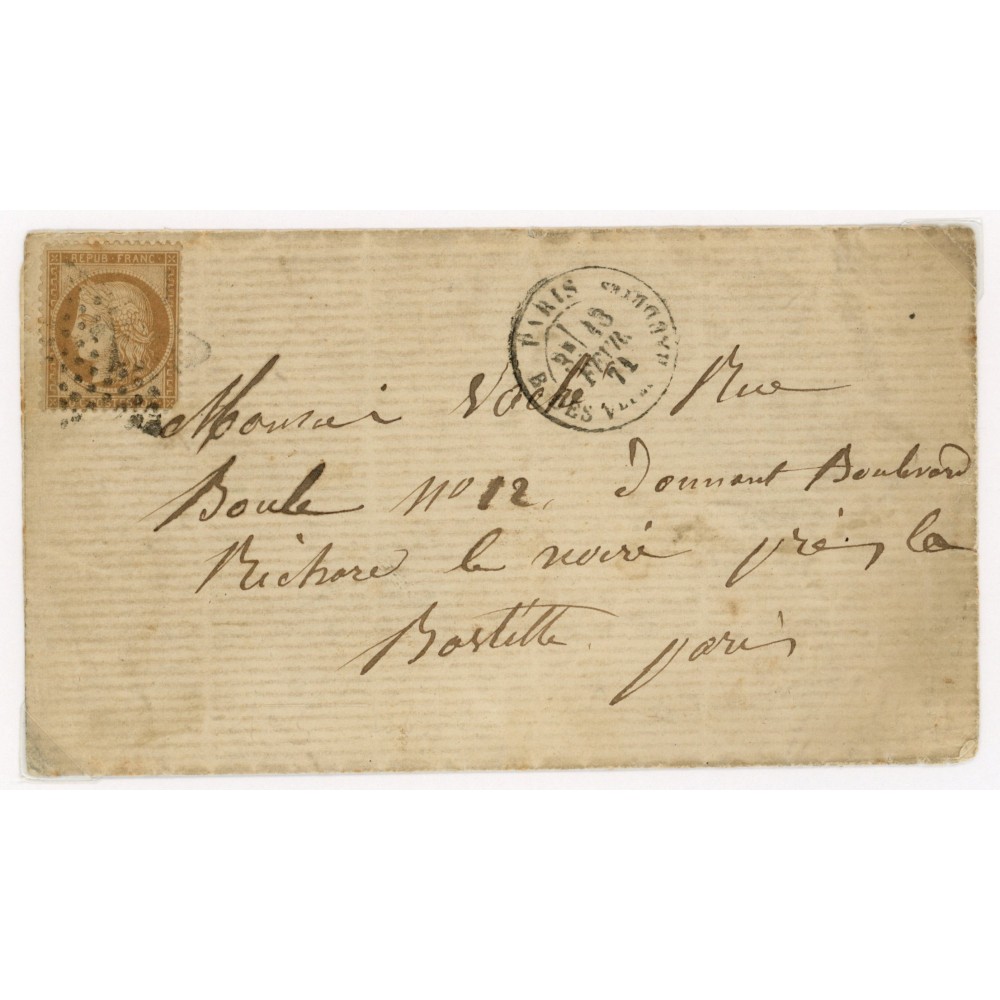 REPUB · FRANC ·
PARIS
3E 13 FEVR 71
Monsieur Voche Rue
Boule no 12, Donnant Boulevard
Richare le noire près la
Bastille. paris